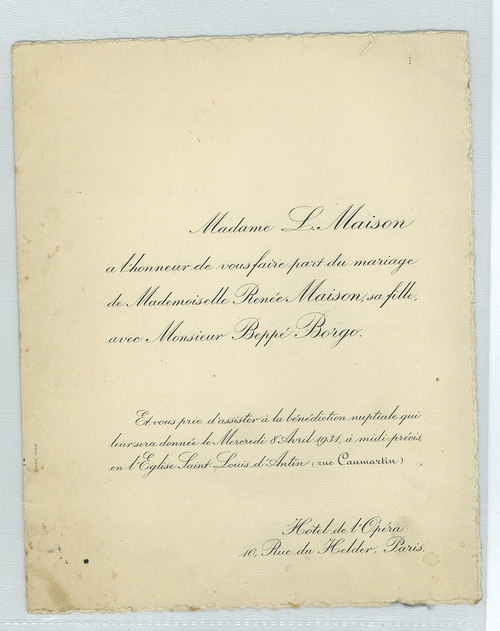 Madame L. Maison
a l'honneur de vous faire part du mariage
de Mademoiselle Renée Maison, sa fille,
avec Monsieur Beppé Borgo.
Et vous prie d'assister à la bénédiction nuptiale qui
leur sera donnée le Mercredi 8 Avril 1931, à midi précis,
en l'Eglise Saint-Louis d'Antin (rue Caumartin)
Hôtel de l'Opéra
16, Rue du Helder, Paris.